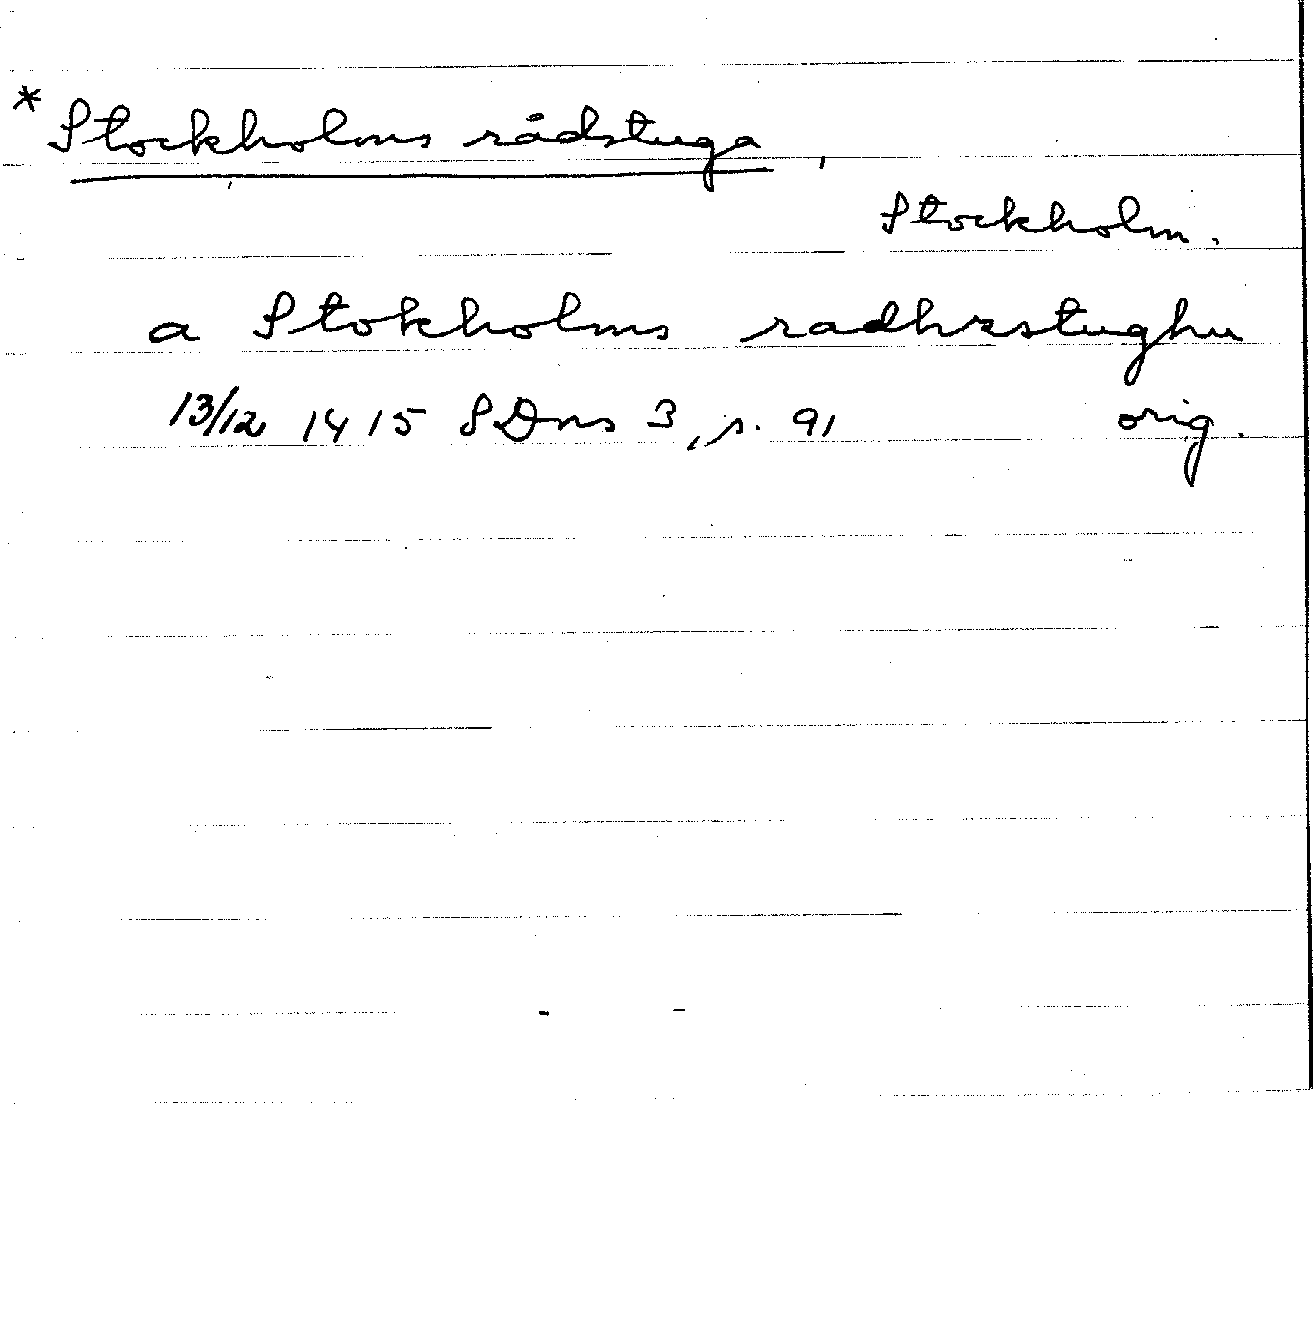 * Stockholms rådstuga,
Stockholm.
a Stokholms radhzstughu
13/12 1415 SDns 3, s. 91 orig.